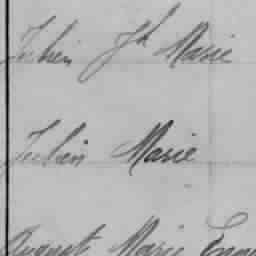 Julien Jh Marie
Julien Marie
Huguet Marie